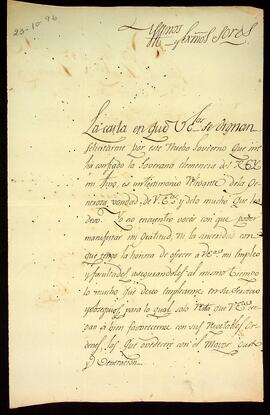 23-10-96
Illmos
y Exmos Sores
La carta en que V. Exas se dignan
felicitarme por este Nuebo Govierno que me
ha confiado la Soverana clemencia del REY
mi Amo, es un testimonio de la Ge-
nerosa vondad, de V. Exas y de lo mucho que les
devo. Yo no encuentro voces con que poder
manifestar mi gratitud, ni la sinceridad con
que tengo la honrra de ofrecer a V. Exas mi empleo
y facultades, asegurandoles al mismo tiempo
lo mucho que deseo emplearme en su servicio
y obsequio, para lo qual solo resta que V. Exas
gan a bien favorecerme con sus Ordenes,
las que obedeceré con el Mayor gusto
y veneracion.